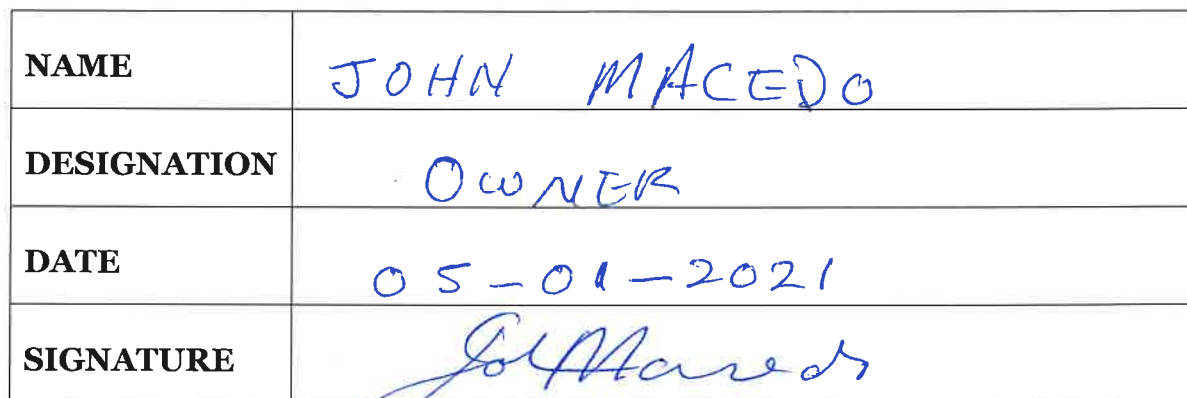 NAME JOHN MACEDO
DESIGNATION OWNER
DATE 05-01-2021
SIGNATURE Joh Macedo